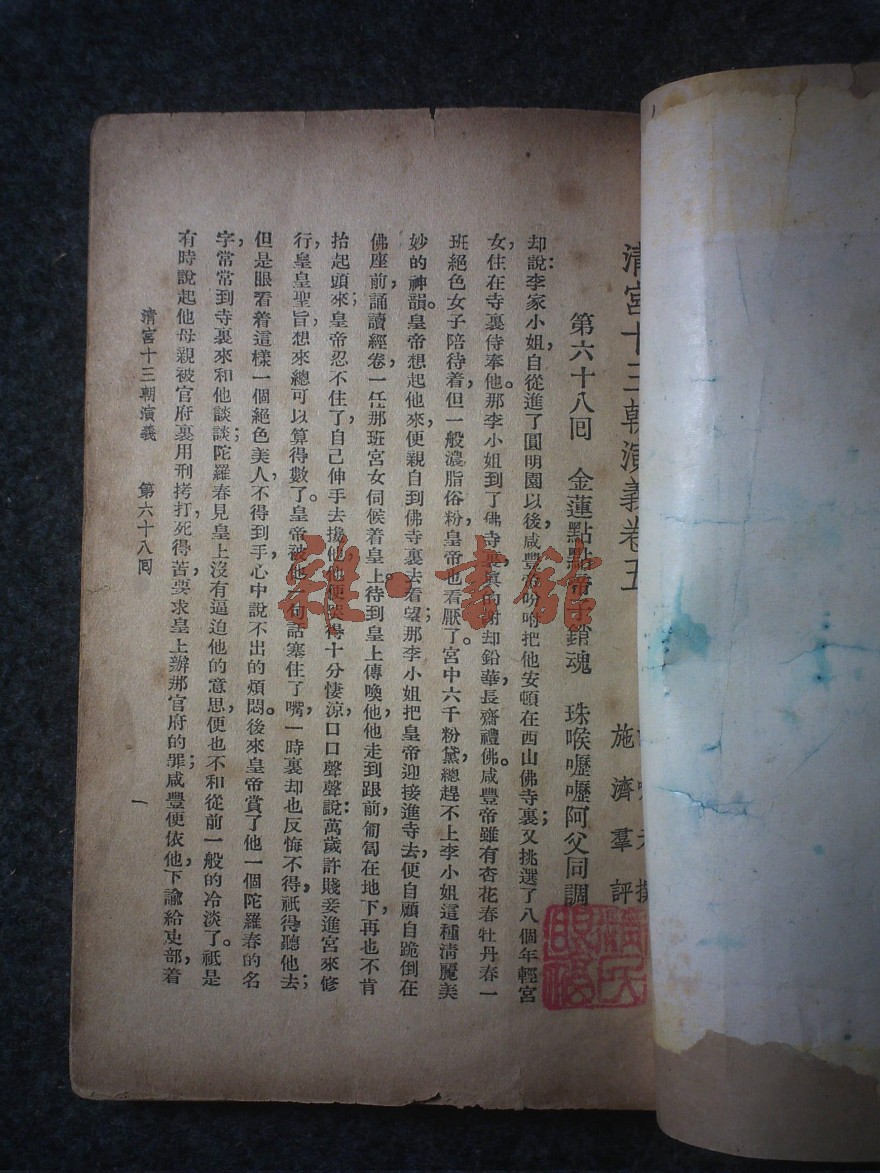 清宮十三朝演義卷五
施濟羣評
第六十八回　金蓮點點帝子銷魂　珠喉嚦嚦阿父同調
却說：李家小姐自從進了圓明園以後，咸豐帝吩咐把他安頓在西山佛寺裏；又挑選了八個年輕宮
女，住在寺裏侍奉他。那李小姐到了佛寺裏，眞的謝却鉛華，長齋禮佛。咸豐帝雖有杏花春牡丹春一
班絕色女子陪待着，但一般濃脂俗粉，皇帝也看厭了。宮中六千粉黛，總趕不上李小姐這種淸麗美
妙的神韻。皇帝想起他來，便親自到佛寺裏去看望；那李小姐把皇帝迎接進寺去，便自顧自跪倒在
佛座前，誦讀經卷，一任那班宮女伺候着皇上。待到皇上傳喚他，他走到跟前，匍匐在地下，再也不肯
抬起頭來；皇帝忍不住了，自己伸手去攙他，他便哭得十分悽涼，口口聲聲說：萬歲許賤妾進宮來修
行，皇皇聖旨，想來總可以算得數了。皇帝被他一句話塞住了嘴，一時裏却也反悔不得，祇得聽他去；
但是眼看着這樣一個絕色美人，不得到手，心中說不出的煩悶。後來皇帝賞了他一個陀羅春的名
字，常常到寺裏來和他談談；陀羅春見皇上沒有逼迫他的意思，便也不和從前一般的冷淡了。祇是
有時說起他母親被官府裏用刑拷打，死得苦，要求皇上辦那官府的罪；咸豐便依他，下諭給吏部，着
清宮十三朝演義　第六十八回　一
雜·書館